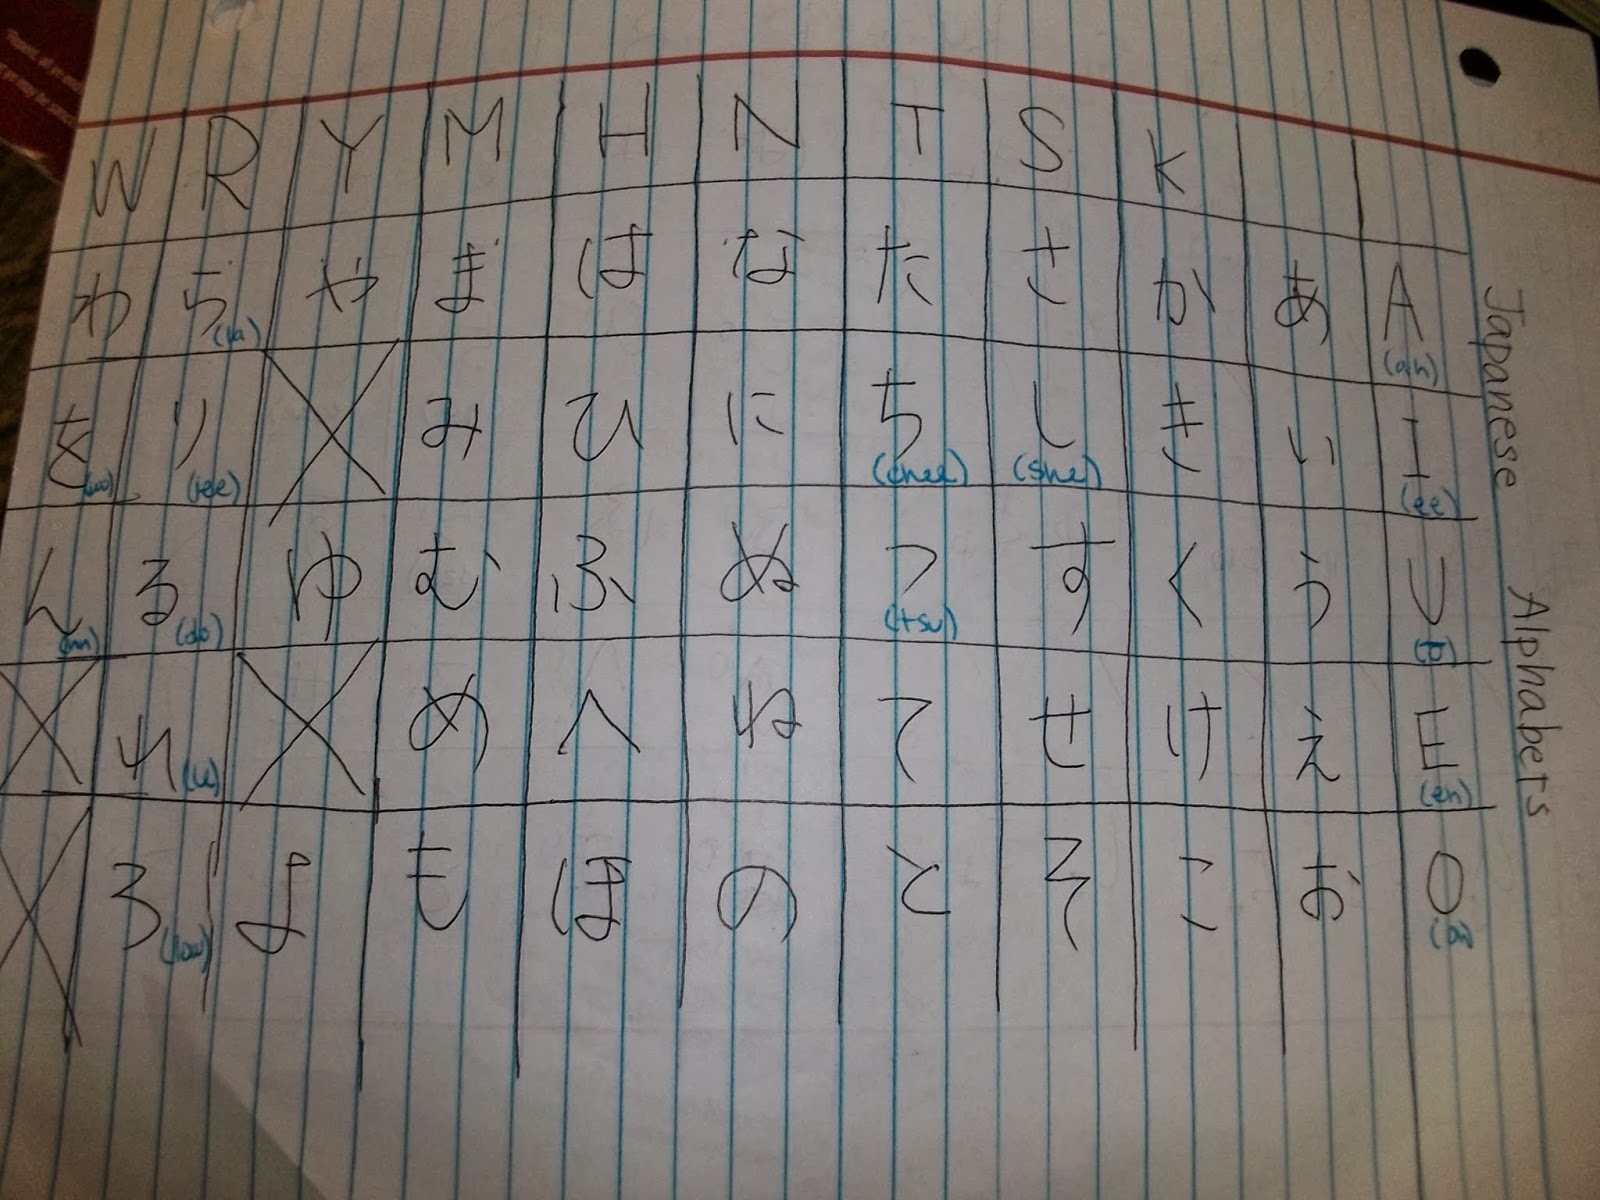 Japanese Alphabets
W R Y M H N T S K
わ ら や ま は な た さ か あ A
(ah)
を り み ひ に ち し き い I
(ree) (chee) (she) (ee)
ん る ゆ む ふ ぬ つ す く う U
(nn) (do) (tsu)
れ め へ ね て せ け え E
(eh)
ろ よ も ほ の と そ こ お O
(low)